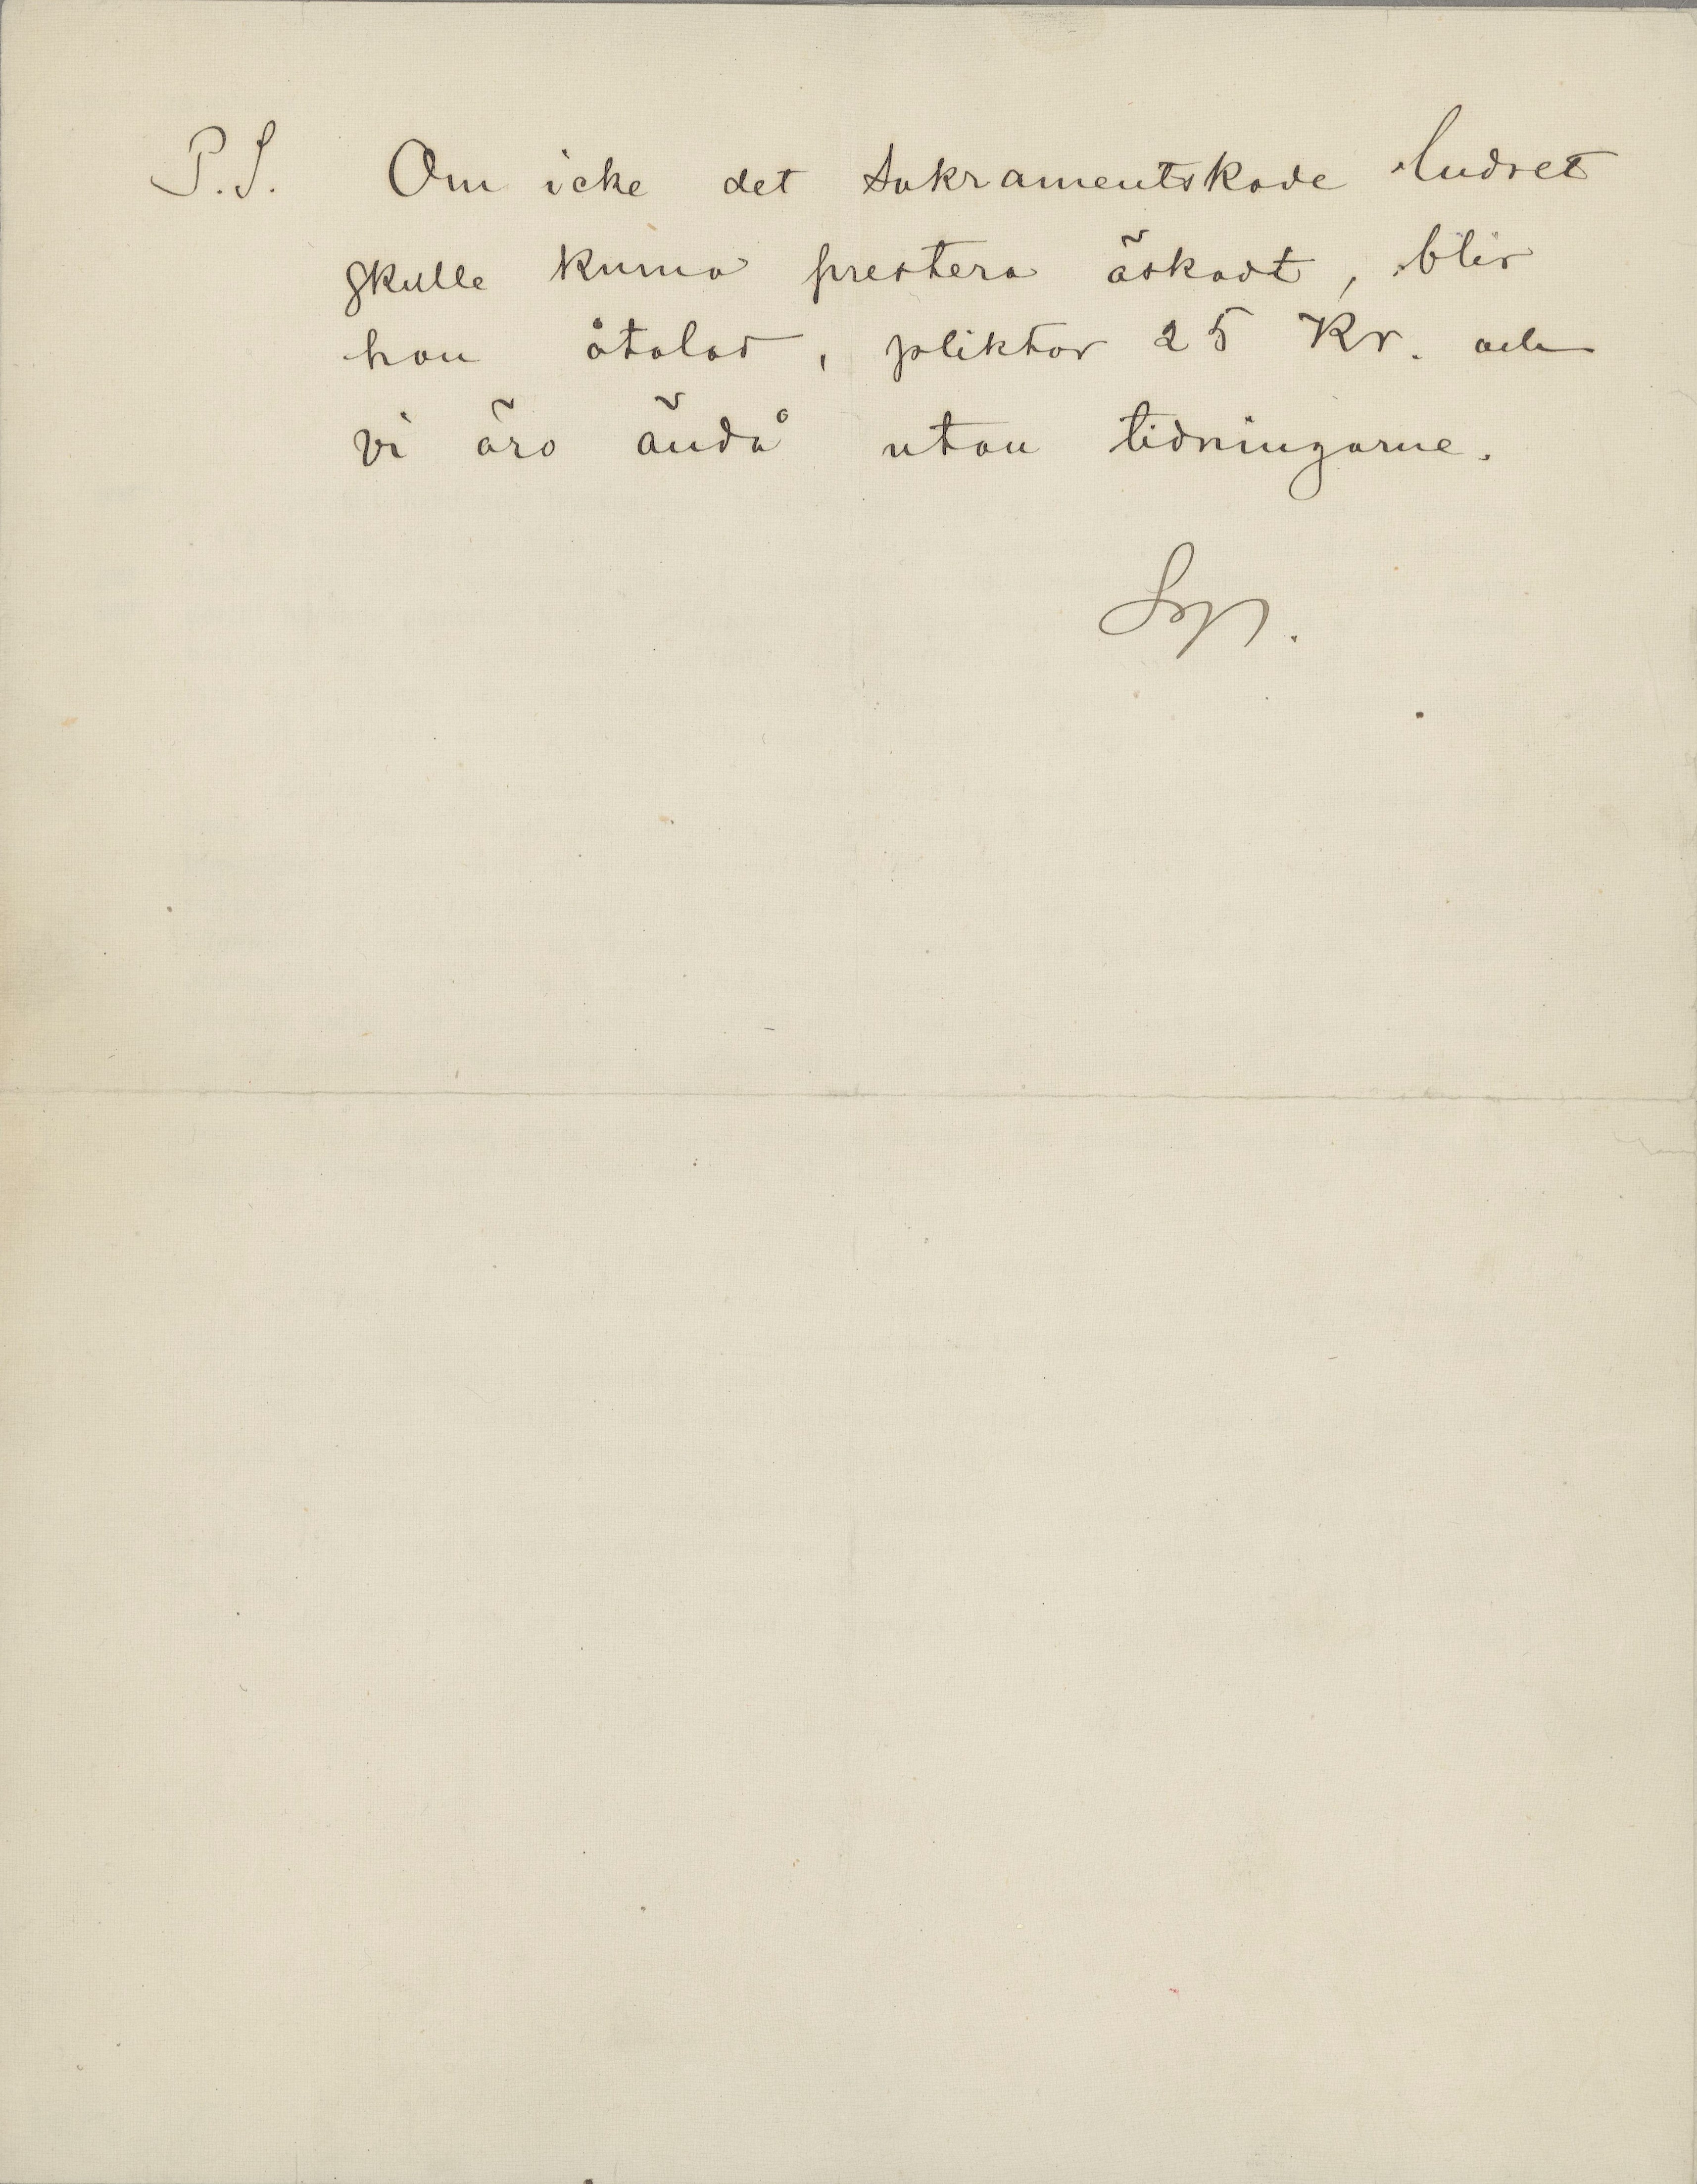 P.S. Om icke det sakramentskade ludret
skulle kunna prestera äskadt, blir
hon åtalad, pliktar 25 Kr. och
vi äro ändå utan tidningarne.